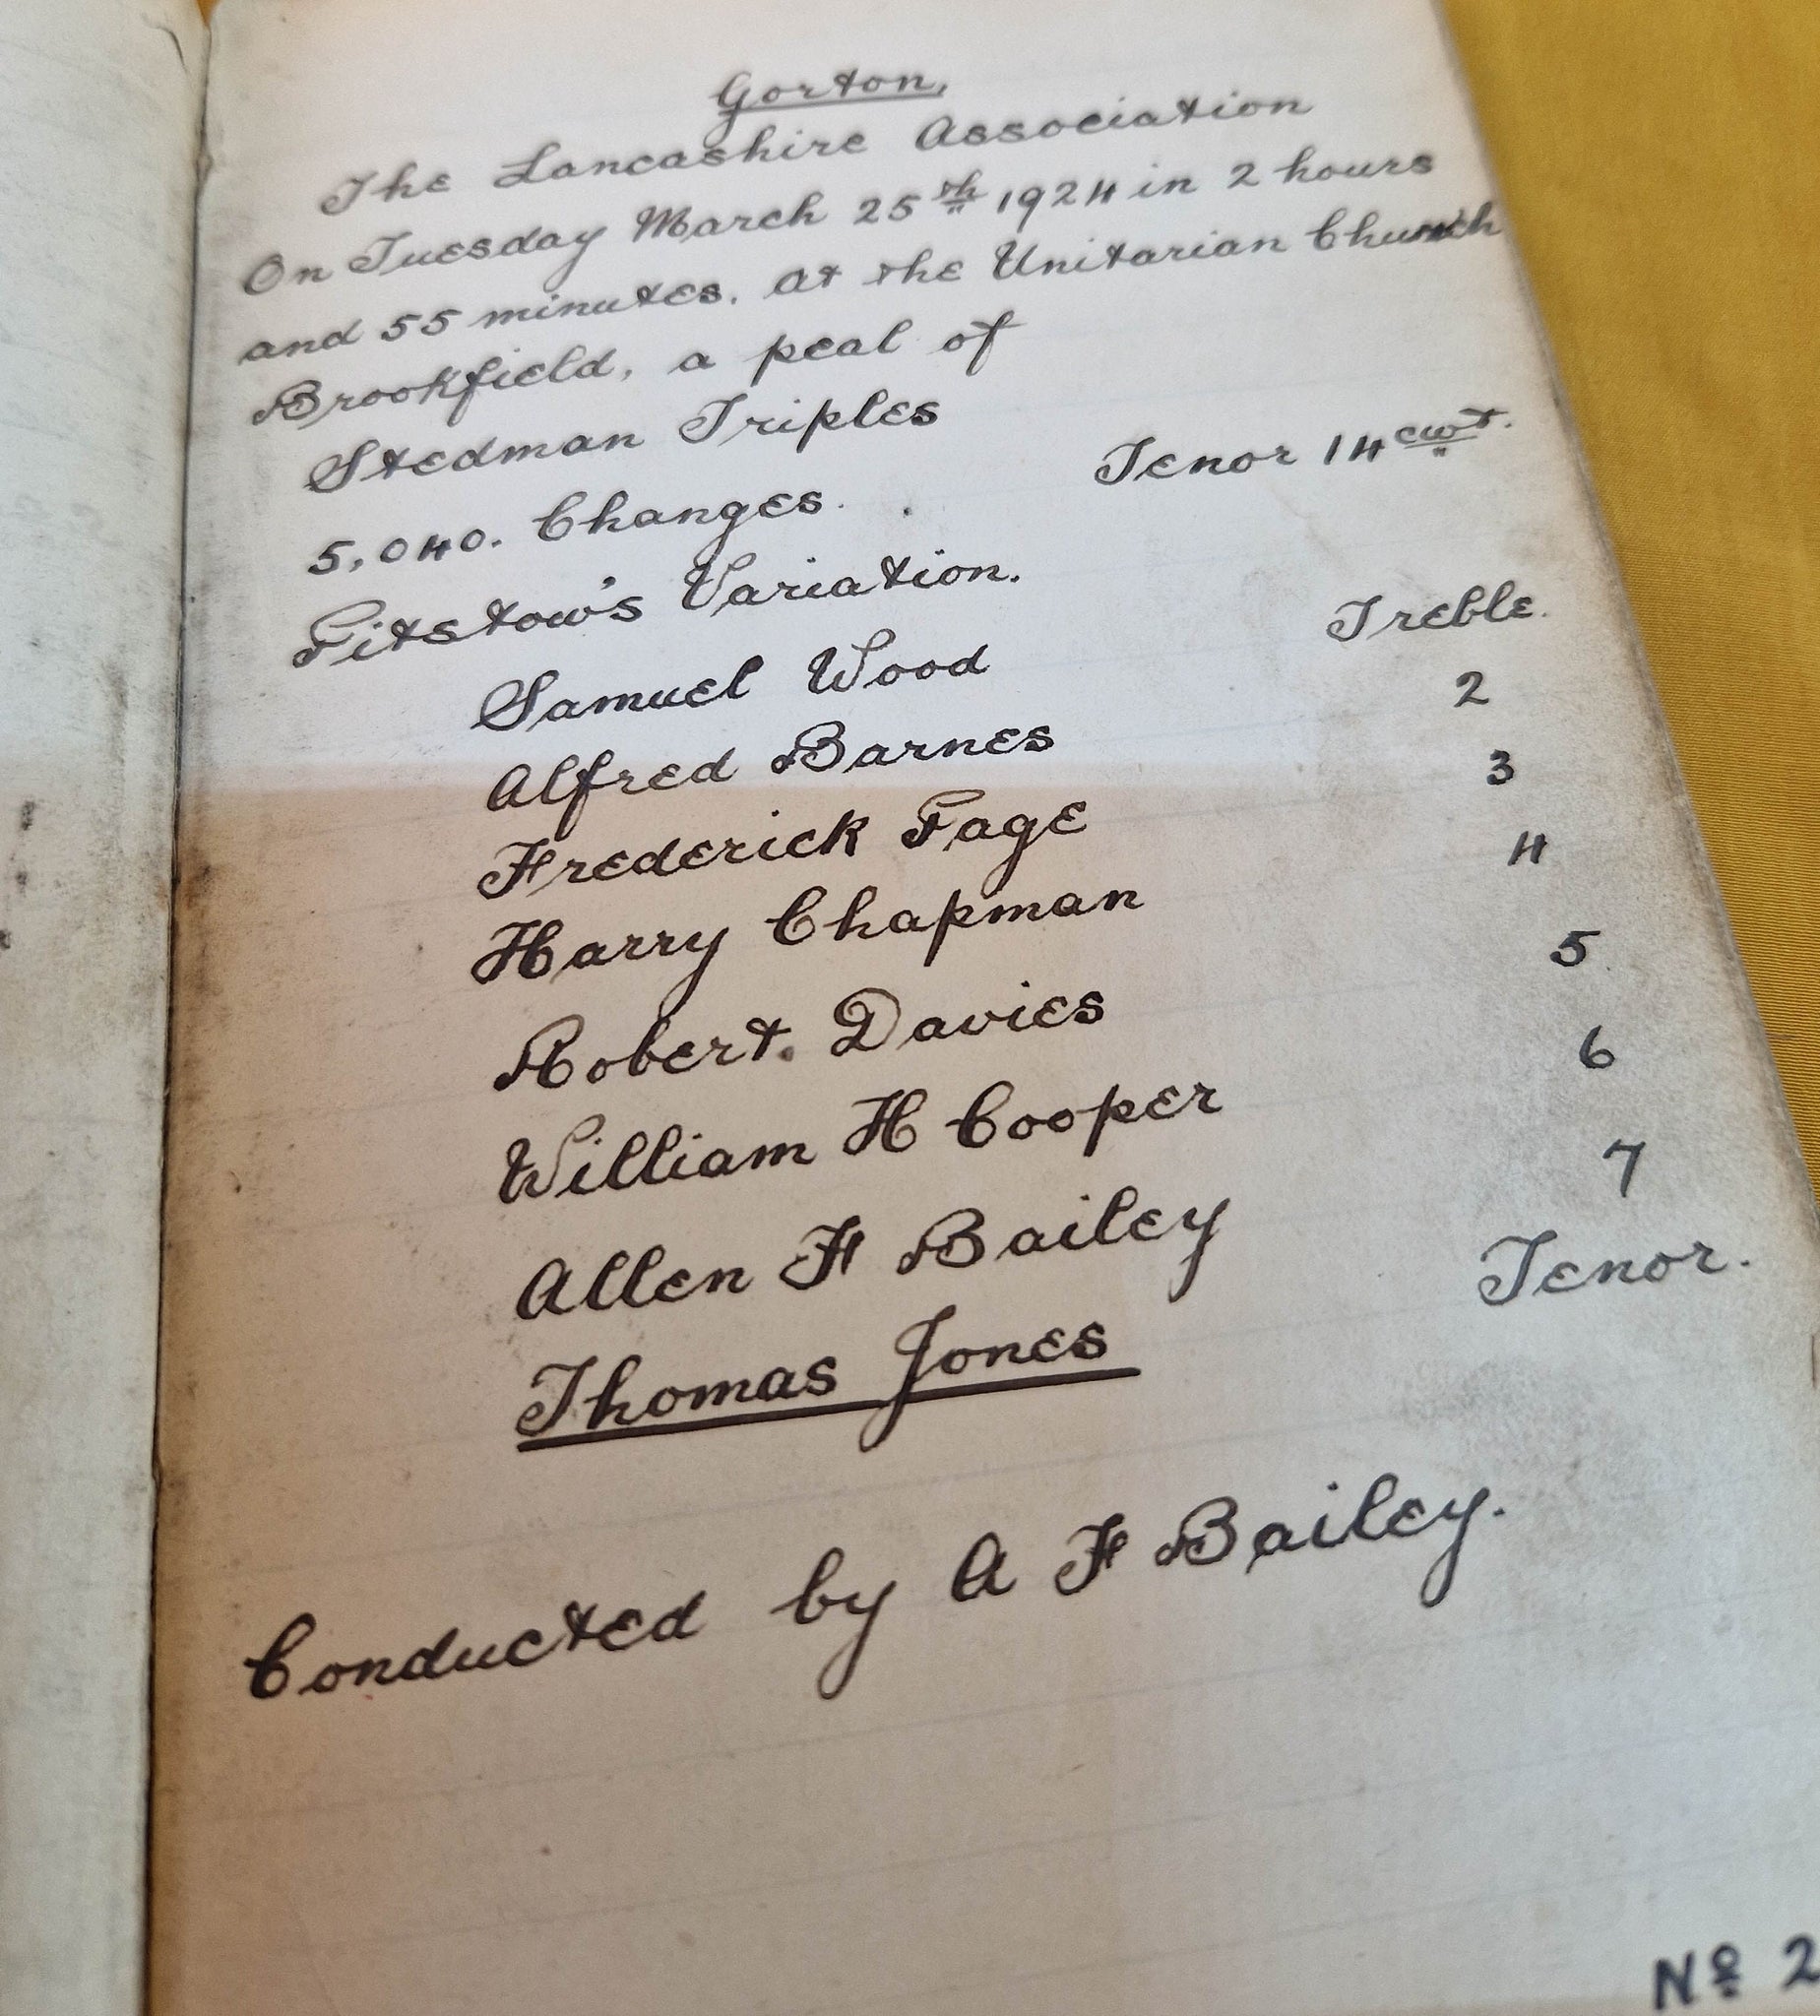 Gorton,
The Lancashire Association
On Tuesday March 25th 1924 in 2 hours
and 55 minutes. At the Unitarian Church
Brookfield, a peal of
Stedman Triples
5,040. Changes. Tenor 14 cwt.
Pitstow's Variation.
Samuel Wood Treble.
Alfred Barnes 2
Frederick Page 3
Harry Chapman 4
Robert. Davies 5
William H Cooper 6
Allen F Bailey 7
Thomas Jones Tenor.
Conducted by A F Bailey.
Nº 2